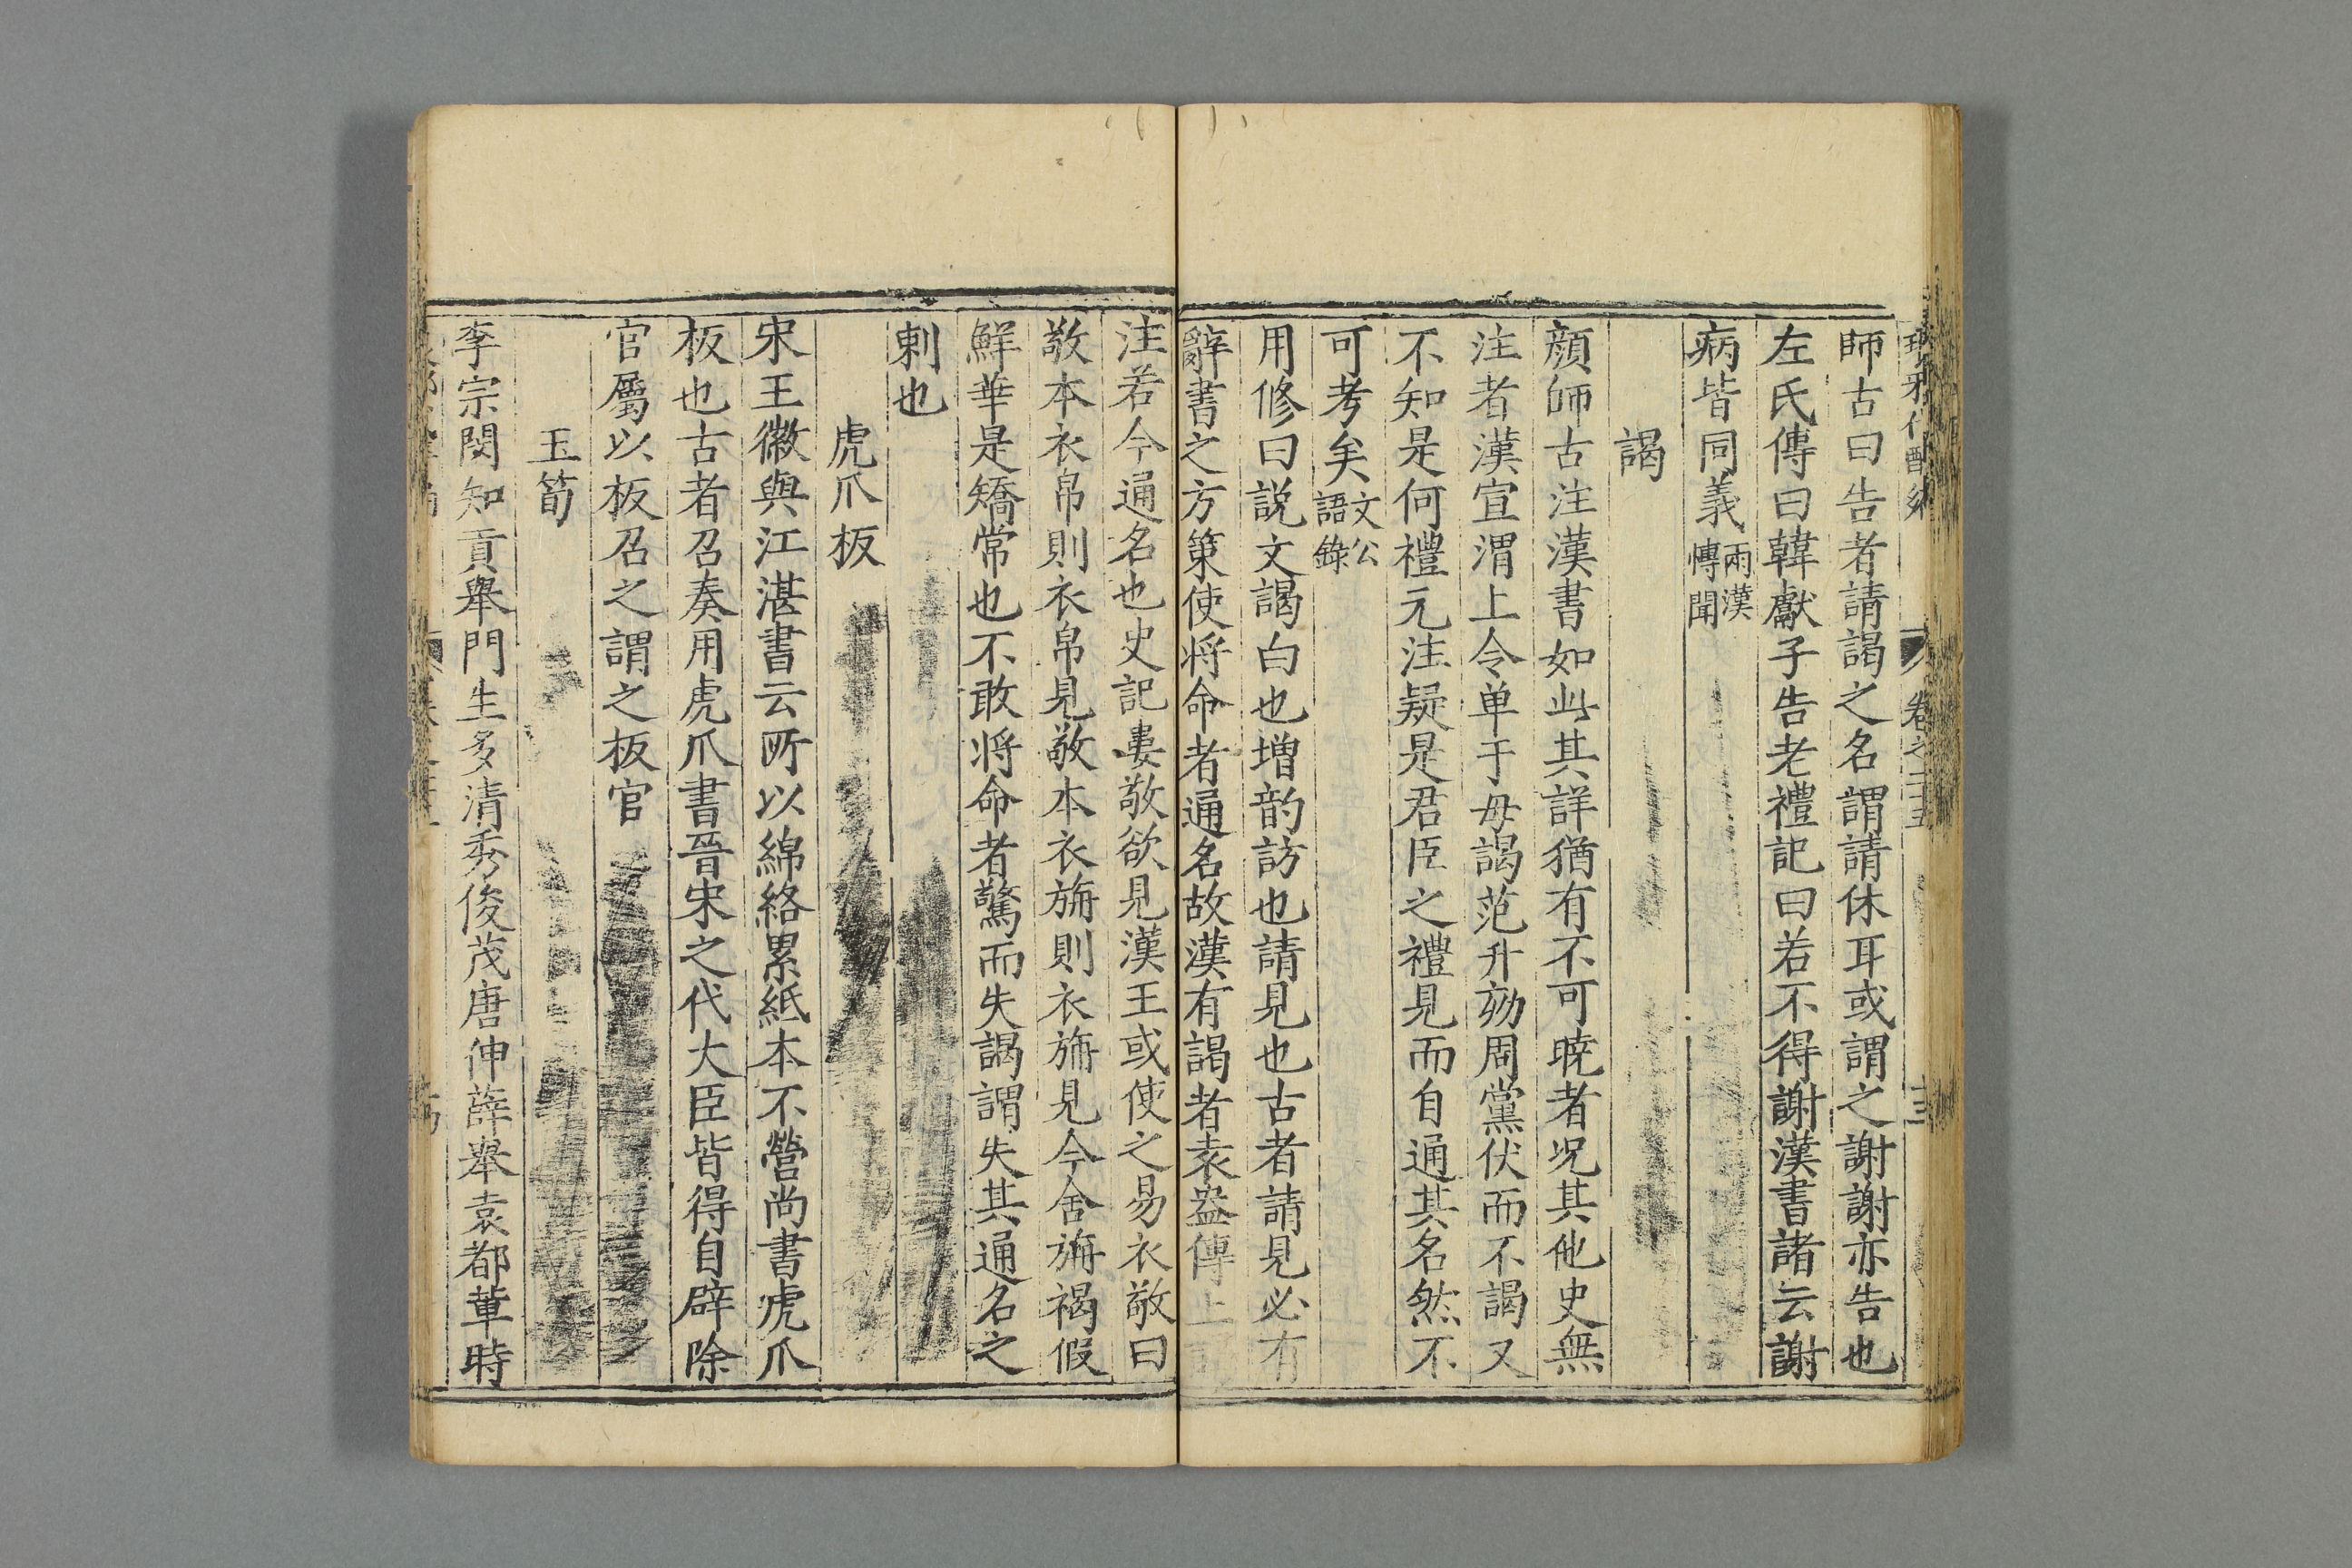 師古曰告者請謁之名謂請休耳或謂之謝謝亦告也
左氏傳曰韓獻子告老禮記曰若不得謝漢書諸云謝
病皆同義兩漢傳聞
謁
顔師古注漢書如此其詳猶有不可曉者况其他史無
注者漢宣渭上令单于毋謁范升劾周黨伏而不謁又
不知是何禮元注疑是君臣之禮見而自通其名然不
可考矣文公語錄
用修曰説文謁白也增韵訪也請見也古者請見必有
辭書之方策使將命者通名故漢有謁者袁盎傳上
注若今通名也史記婁敬欲見漢王或使之易衣敬曰
敬本衣帛則衣帛見敬本衣旃則衣旃見今舍旃褐假
鮮華是矯常也不敢將命者驚而失謁謂失其通名之
刺也
虎爪板
宋王徽與江湛書云所以綿絡累紙本不營尚書虎爪
板也古者召奏用虎爪書晉宋之代大臣皆得自辟除
官屬以板召之謂之板官
玉筍
李宗閔知貢舉門生多清秀俊茂唐伸薛舉袁都輩時
卷之二十五